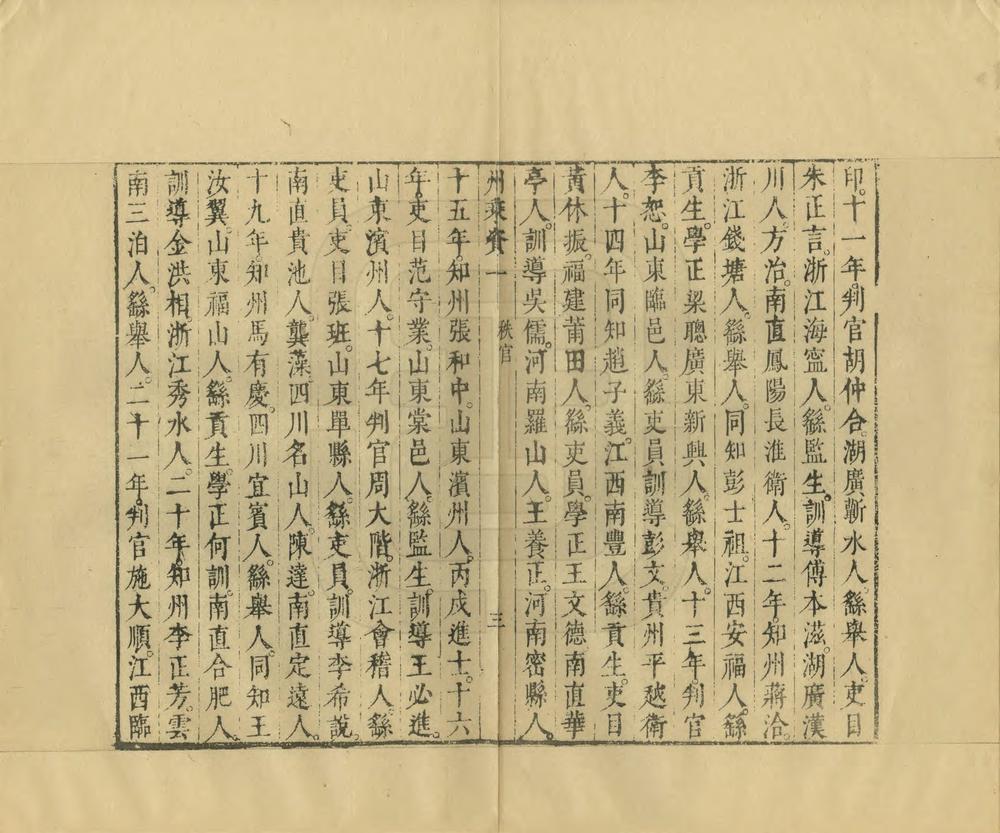 印。十一年。判官胡仲合。湖廣蘄水人。繇舉人。吏目
朱正言。浙江海寧人。繇監生。訓導傅本滋。湖廣漢
川人。方治。南直鳳陽長淮衛人。十二年。知州蔣洽。
浙江錢塘人。繇舉人。同知彭士祖。江西安福人。繇
貢生。學正梁聰。廣東新興人。繇舉人。十三年。判官
李恕。山東臨邑人。繇吏員。訓導彭文。貴州平越衛
人。十四年。同知趙子義。江西南豐人。繇貢生。吏目
黃休振。福建莆田人。繇吏員。學正王文德。南直華
亭人。訓導吳儒。河南羅山人。王養正。河南密縣人。
州乘資一 秩官 三
十五年。知州張和中。山東濱州人。丙戌進士。十六
年。吏目范守業。山東棠邑人。繇監生。訓導王必進。
山東濱州人。十七年。判官周大階。浙江會稽人。繇
吏員。吏目張班。山東單縣人。繇吏員。訓導李希說。
南直貴池人。龔藻。四川名山人。陳達。南直定遠人。
十九年。知州馬有慶。四川宜賓人。繇舉人。同知王
汝翼。山東福山人。繇貢生。學正何訓。南直合肥人。
訓導金洪相。浙江秀水人。二十年。知州李正芳。雲
南三泊人。繇舉人。二十一年。判官施大順。江西臨